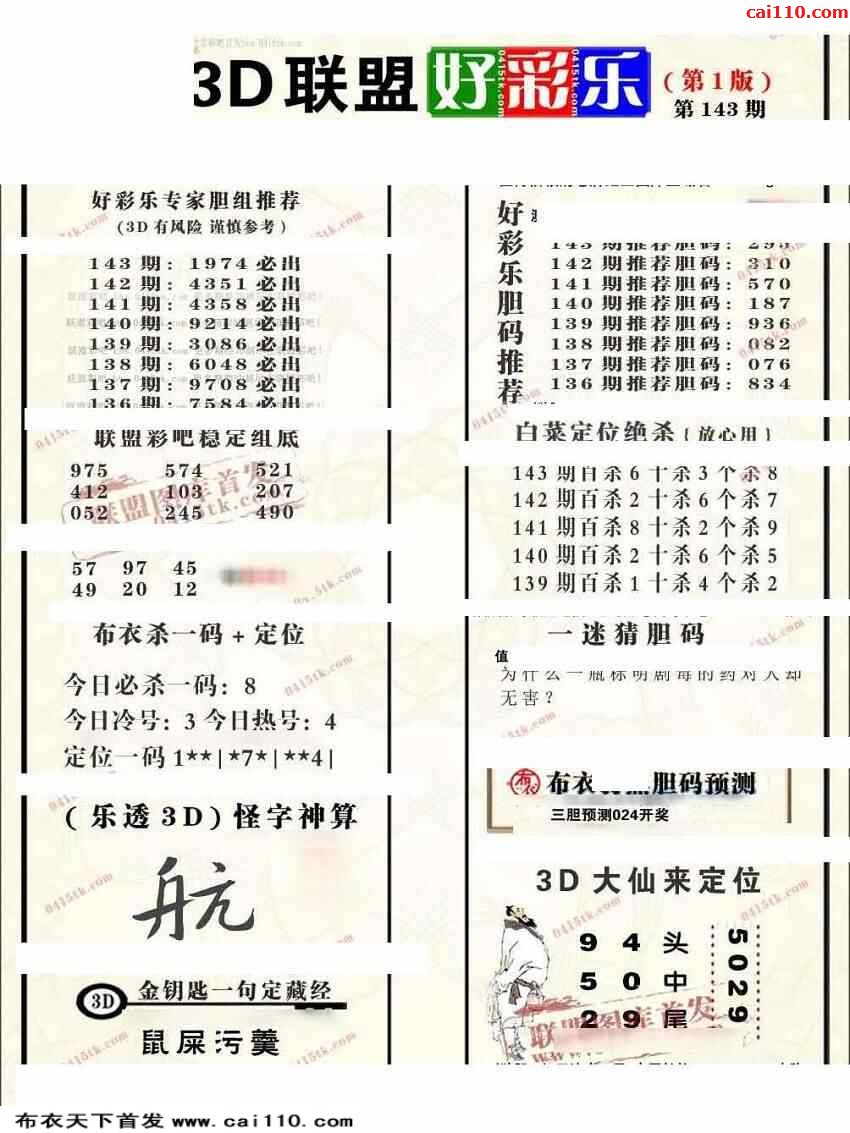 cai110.com
3D联盟好彩乐(第1版)
第143期
好彩乐专家胆组推荐
(3D有风险 谨慎参考)
143期: 1974必出
142期: 4351必出
141期: 4358必出
140期: 9214必出
139期: 3086必出
138期: 6048必出
137期: 9708必出
136期: 7584必出
联盟彩吧稳定组底
975 574 521
412 103 207
052 245 490
联盟图库首发
57 97 45
49 20 12
布衣杀一码+定位
今日必杀一码: 8
今日冷号: 3 今日热号: 4
定位一码1**|*7*|**4|
(乐透3D)怪字神算
航
3D 金钥匙一句定藏经
鼠屎污羹
好彩乐胆码推荐
143期推荐胆码: 295
142期推荐胆码: 310
141期推荐胆码: 570
140期推荐胆码: 187
139期推荐胆码: 936
138期推荐胆码: 082
137期推荐胆码: 076
136期推荐胆码: 834
白菜定位绝杀(放心用)
143期百杀6十杀3个杀8
142期百杀2十杀6个杀7
141期百杀8十杀2个杀9
140期百杀2十杀6个杀5
139期百杀1十杀4个杀2
一迷猜胆码
值
为什么一瓶标明剧毒的药对人却
无害?
布衣 胆码预测
三胆预测024开奖
3D大仙来定位
9 4 头
5 0 中
2 9 尾
5029
联盟图库首发
布衣天下首发 www.cai110.com